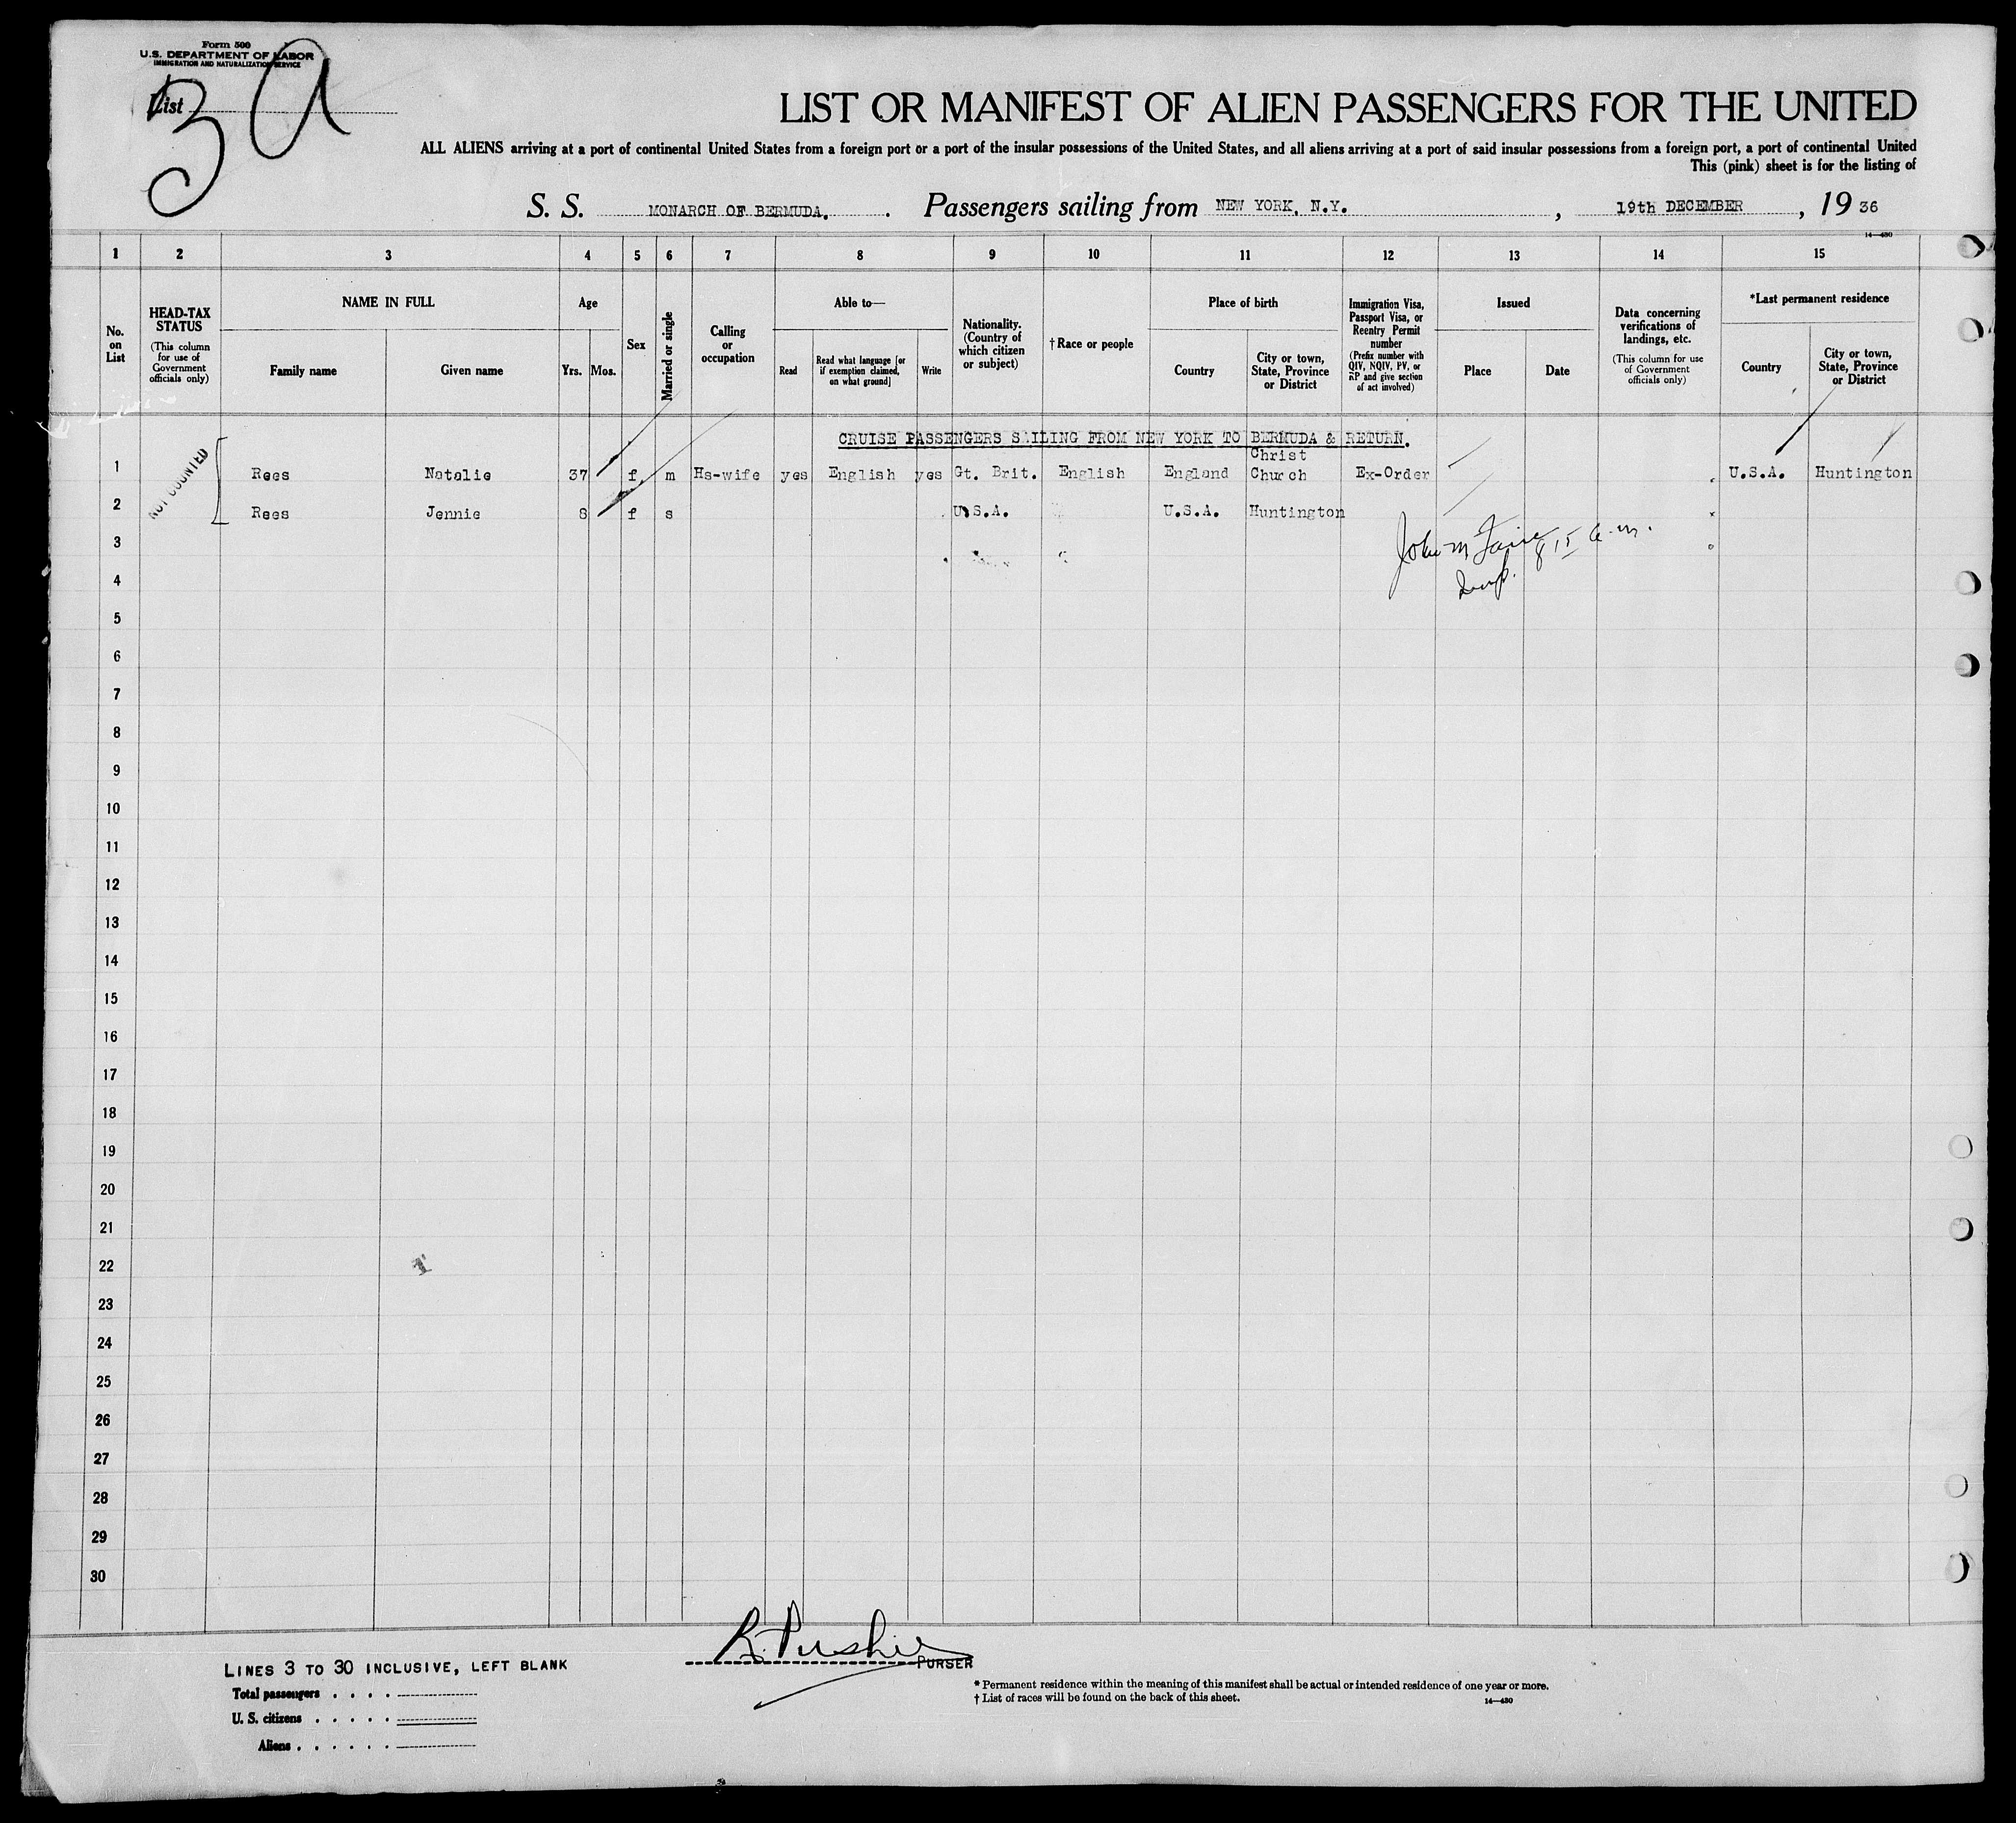 Form 500
U.S. DEPARTMENT OF LABOR
IMMIGRATION AND NATURALIZATION SERVICE
List
3 a
LIST OR MANIFEST OF ALIEN PASSENGERS FOR THE UNITED
ALL ALIENS arriving at a port of continental United States from a foreign port or a port of the insular possessions of the United States, and all aliens arriving at a port of said insular possessions from a foreign port, a port of continental United
This (pink) sheet is for the listing of
S. S. MONARCH OF BERMUDA. . Passengers sailing from NEW YORK, N.Y. , 19th DECEMBER , 19 36
14—480
1 2 3 4 5 6 7 8 9 10 11 12 13 14 15
No. on List
HEAD-TAX STATUS
(This column for use of Government officials only)
NAME IN FULL
Family name Given name
Age
Yrs. Mos.
Sex
Married or single
Calling or occupation
Able to—
Read
Read what language [or if exemption claimed, on what ground]
Write
Nationality. (Country of which citizen or subject)
†Race or people
Place of birth
Country
City or town, State, Province or District
Immigration Visa, Passport Visa, or Reentry Permit number
(Prefix number with QIV, NQIV, PV, or RP and give section of act involved)
Issued
Place Date
Data concerning verifications of landings, etc.
(This column for use of Government officials only)
*Last permanent residence
Country
City or town, State, Province or District
CRUISE PASSENGERS SAILING FROM NEW YORK TO BERMUDA & RETURN.
NOT COUNTED
1 Rees Natalie 37 f. m Hs-wife yes English yes Gt. Brit. English England Christ Church Ex-Order U.S.A. Huntington
2 Rees Jennie 8 f s U.S.A. U.S.A. Huntington
John M 8 15 a.m.
Insp.
3
4
5
6
7
8
9
10
11
12
13
14
15
16
17
18
19
20
21
22
23
24
25
26
27
28
29
30
LINES 3 TO 30 INCLUSIVE, LEFT BLANK
PURSER
Total passengers
U. S. citizens
Aliens
* Permanent residence within the meaning of this manifest shall be actual or intended residence of one year or more.
† List of races will be found on the back of this sheet.
14—480